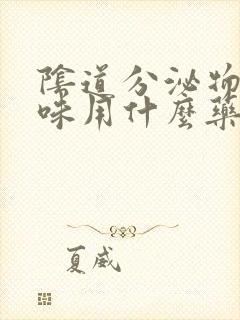 陰道分泌物
味用什麼藥
夏威